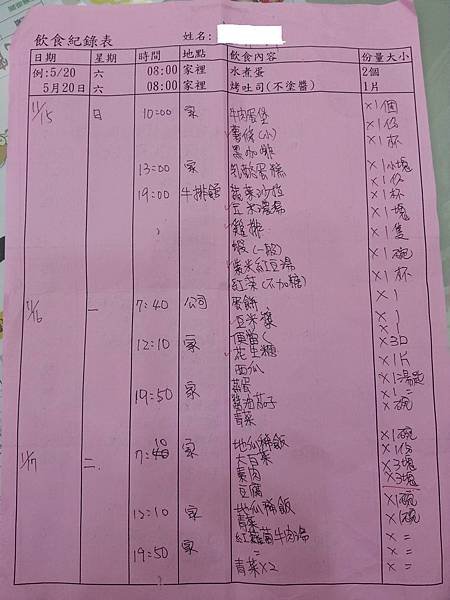 飲食紀錄表 姓名:
日期 星期 時間 地點 飲食內容 份量大小
例:5/20 六 08:00 家裡 水煮蛋 2個
5月20日 六 08:00 家裡 烤吐司(不塗醬) 1片
11/15 日 10:00 家 牛肉蛋堡 ×1個
薯條(小) ×1份
黑咖啡 ×1杯
13:00 家 乳酪蛋糕 ×1小塊
19:00 牛排館 蔬菜沙拉 ×1份
玉米濃湯 ×1杯
雞排 ×1塊
蝦(一般) ×1隻
紫米紅豆湯 ×1碗
紅茶(不加糖) ×1杯
11/16 一 7:40 公司 蛋餅 ×1
豆米漿 ×1
12:10 家 便當 ×1
花生糖 ×3口
西瓜 ×1片
19:50 家 蒸蛋 ×1湯匙
醬油茄子 ×1 〃
青菜 ×1碗
11/17 二 7:10 家 地瓜稀飯 ×1碗
大白菜 ×1份
素肉 ×3塊
豆腐 ×3塊
12:10 家 地瓜稀飯 ×1碗
青菜 ×1碗
紅蘿蔔牛肉湯 × =
19:50 家 = × =
青菜×2 × =